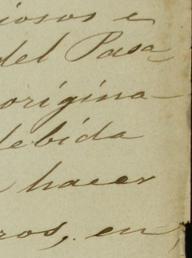 iosos e
del Pasa-
origina-
debida
hacer
ros, en